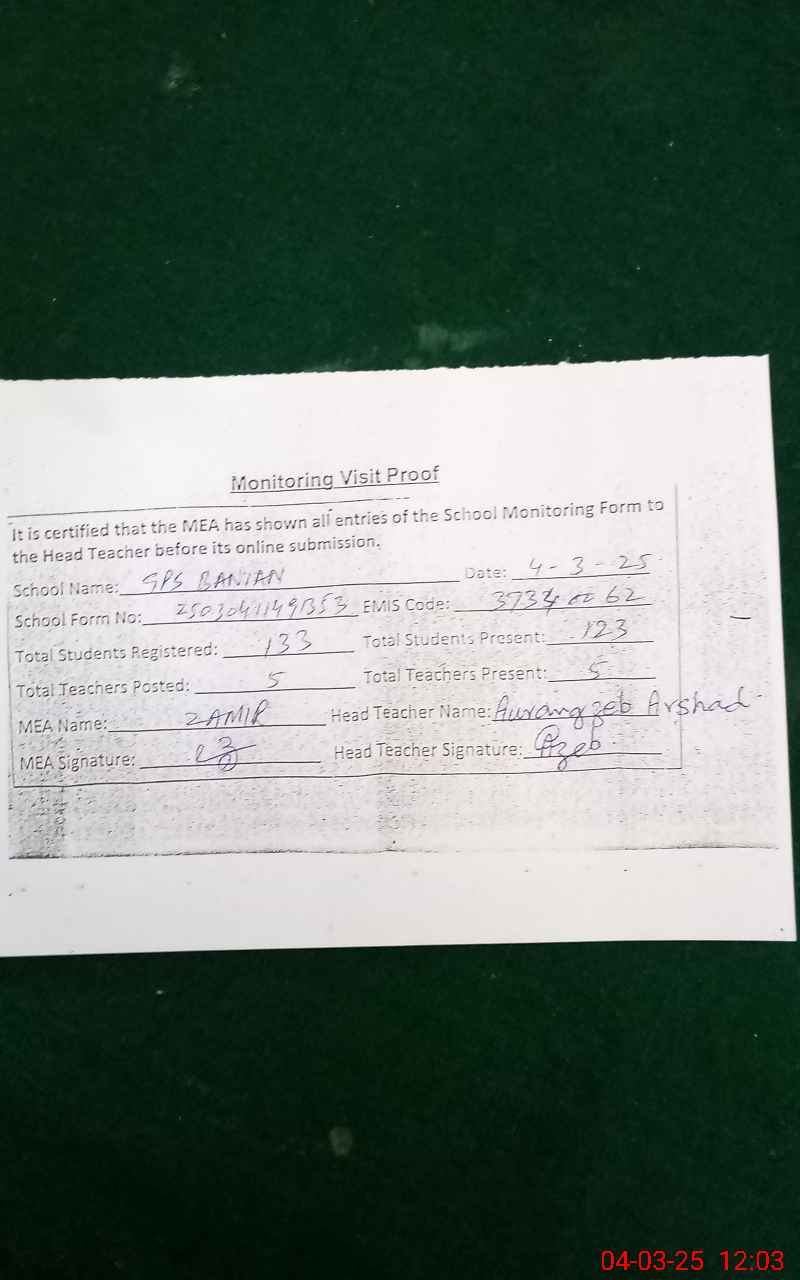 Monitoring Visit Proof
It is certified that the MEA has shown all entries of the School Monitoring Form to
the Head Teacher before its online submission.
School Name: GPS BANIAN Date: 4-3-25
School Form No: EMIS Code:
Total Students Registered: 133 Total Students Present: 123
Total Teachers Posted: 5 Total Teachers Present: 5
MEA Name: ZAMIR Head Teacher Name: Aurangzeb Arshad
MEA Signature: Head Teacher Signature: Azeb
04-03-25 12:03